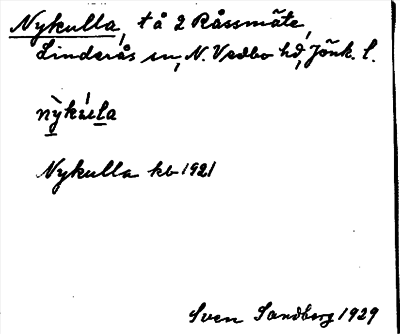 Nykulla, t å 2 Råssmäte,
Linderås sn, N. Vedbo hd, Jönk. l.
nỳkúlla
Nykulla kb 1921
Sven Sandberg 1929